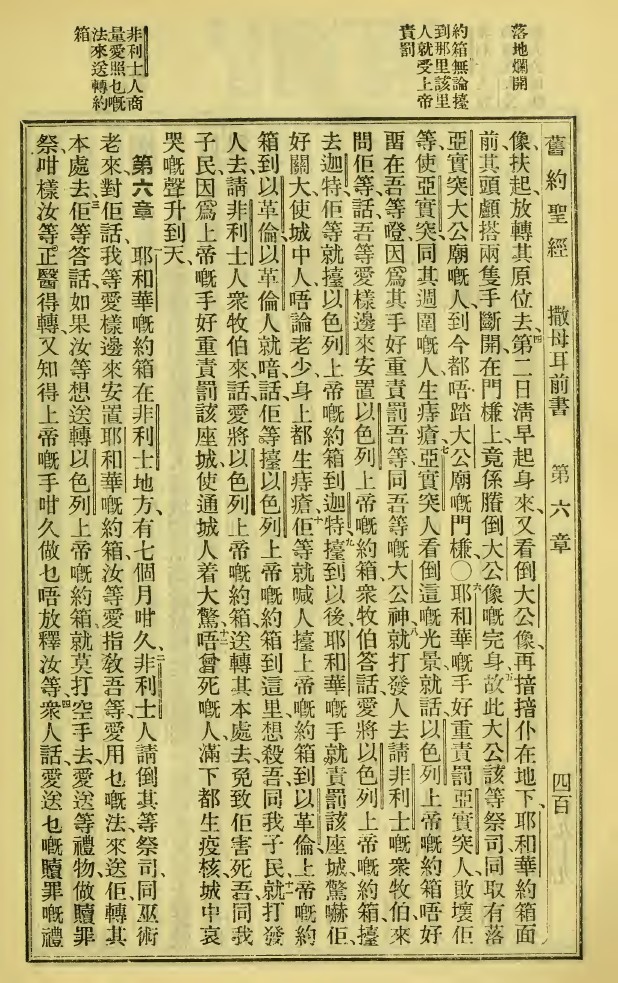 落地爛開
約箱無論擡
到那里該里
人就受上帝
責罰
非利士人商
量愛照乜嘅
法來送轉約
箱
舊約聖經 撒母耳前書 第六章 四百
像扶起、放轉其原位去、四第二日淸早起身來、又看倒大公像、再揞揞仆在地下、耶和華約箱面
前、其頭顱搭兩隻手斷開在門槺上、竟係賸倒大公像嘅完身、五故此大公該等祭司、同取有落
亞實突大公廟嘅人、到今都唔踏大公廟嘅門槺、〇六耶和華嘅手好重責罰亞實突人、敗壞佢
等、使亞實突、同其週圍嘅人、生痔瘡、七亞實突人看倒這嘅光景、就話、以色列上帝嘅約箱唔好
畱在吾等噔、因爲其手好重責罰吾等、同吾等嘅大公神、八就打發人去請非利士嘅衆牧伯來
問佢等話、吾等愛樣邊來安置以色列上帝嘅約箱、衆牧伯答話、愛將以色列上帝嘅約箱、擡
去迦特、佢等就擡以色列上帝嘅約箱到迦特、九擡到以後、耶和華嘅手就責罰該座城、驚嚇佢
好關大、使城中人、唔論老少、身上都生痔瘡、十佢等就喊人擡上帝嘅約箱到以革倫、上帝嘅約
箱到以革倫、以革倫人就喑話、佢等擡以色列上帝嘅約箱到這里、想殺吾同我子民、十一就打發
人去請非利士人衆牧伯來話、愛將以色列上帝嘅約箱、送轉其本處去、免致佢害死吾同我
子民、因爲上帝嘅手好重責罰該座城、使通城人着大驚、十二唔曾死嘅人、滿下都生疫核、城中哀
哭嘅聲升到天、
第六章 一耶和華嘅約箱在非利士地方、有七個月咁久、二非利士人請倒其等祭司、同巫術
老來、對佢話、我等愛樣邊來安置耶和華嘅約箱、汝等愛指敎吾等、愛用乜嘅法來送佢轉其
本處去、三佢等答話、如果汝等想送轉以色列上帝嘅約箱、就莫打空手去、愛送等禮物做贖罪
祭、咁樣汝等正醫得轉、又知得上帝嘅手咁久做乜唔放釋汝等、四衆人話、愛送乜嘅贖罪嘅禮